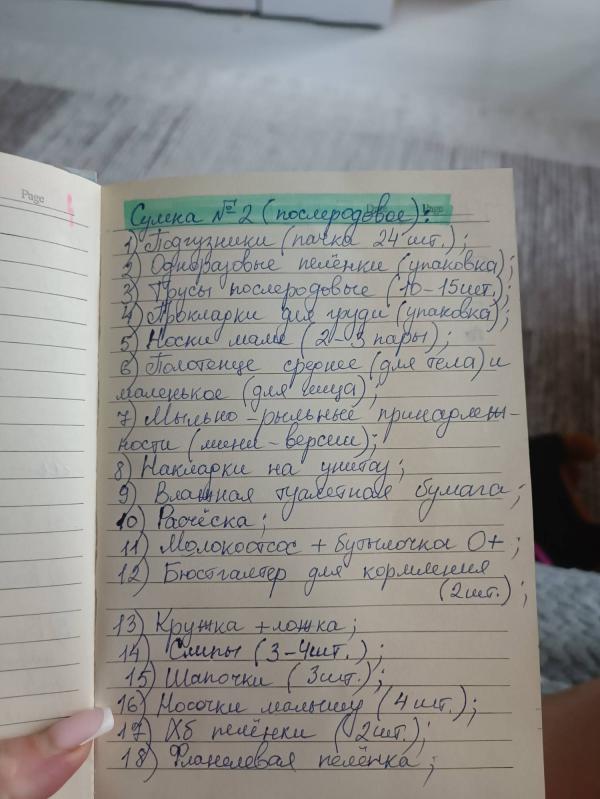 Page
Page
Сумка №2 (послеродовое):
1) Подгузники (пачка 24 шт.);
2) Одноразовые пелёнки (упаковка);
3) Трусы послеродовые (10-15шт);
4) Прокладки для груди (упаковка);
5) Носки маме (2-3 пары);
6) Полотенце среднее (для тела) и
маленькое (для лица);
7) Мыльно-рыльные принадлеж-
ности (мини-версии);
8) Накладки на унитаз;
9) Влажная туалетная бумага;
10) Расчёска;
11) Молокоотсос + бутылочка 0+;
12) Бюстгалтер для кормления
(2шт.);
13) Кружка + ложка;
14) Слипы (3-4шт.);
15) Шапочки (3шт.);
16) Носочки малышу (4шт.);
17) Хб пелёнки (2шт.);
18) Фланелевая пелёнка;